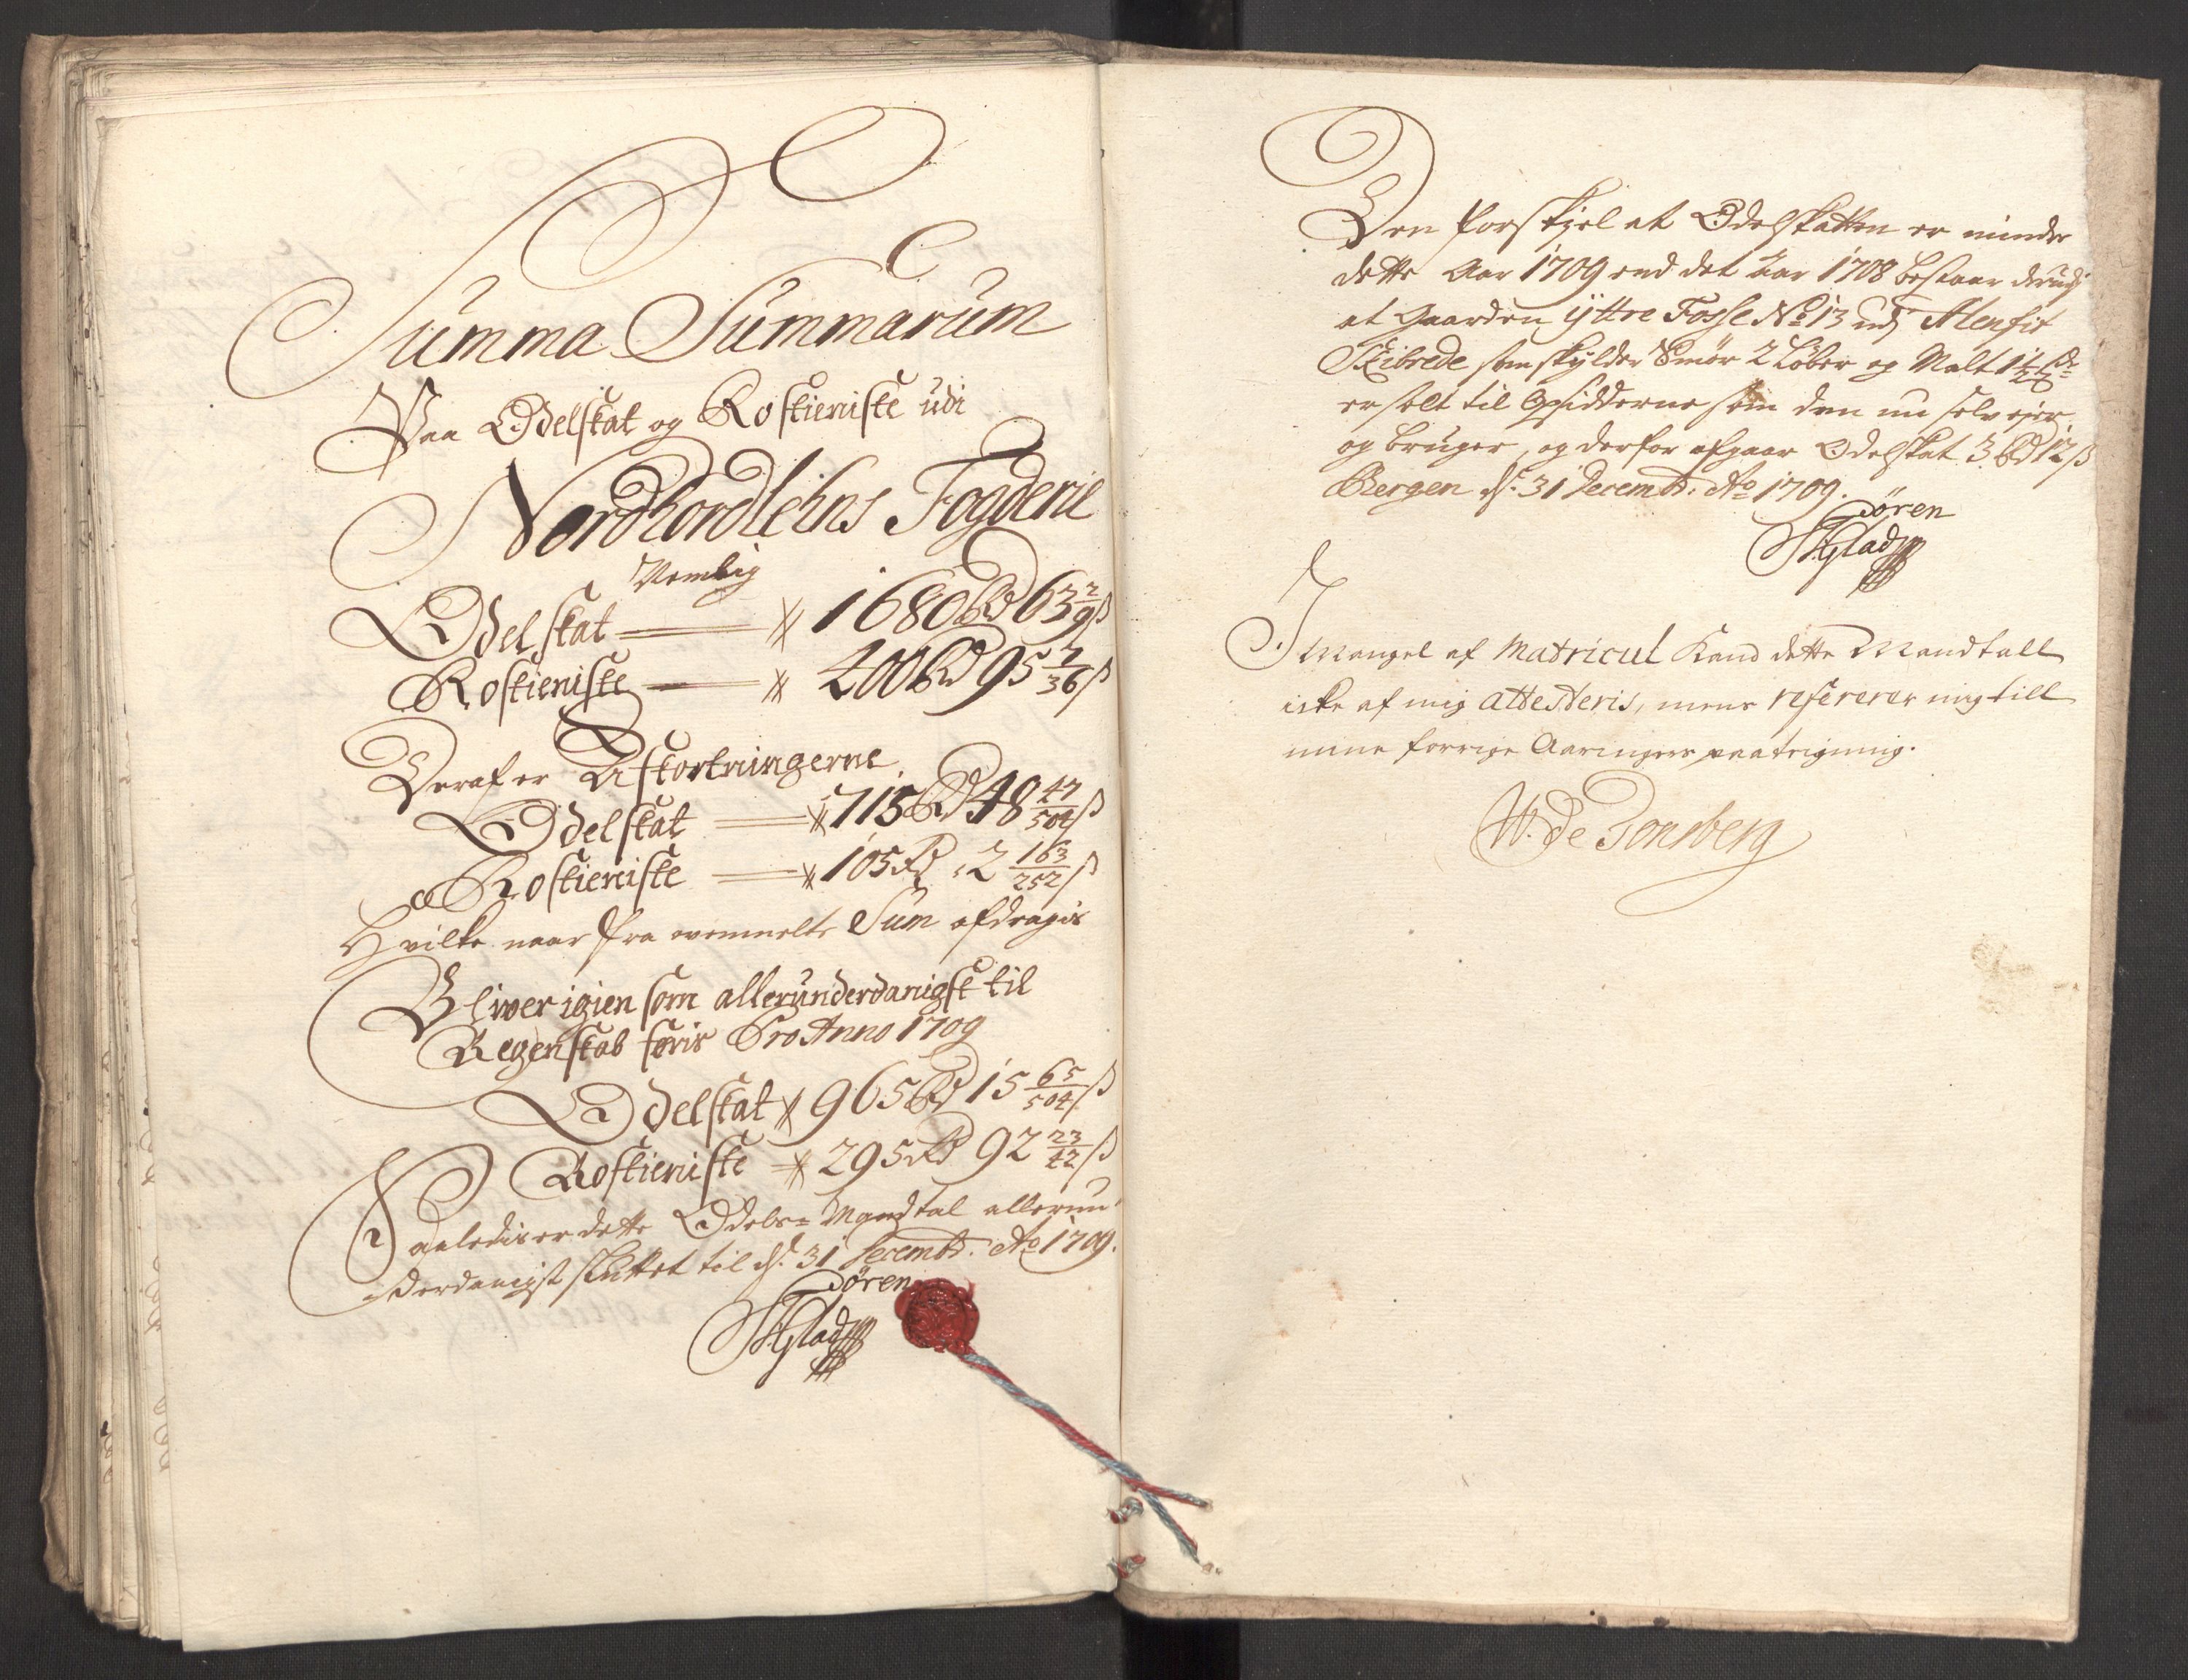 Summa Summarum
Paa Odelskat og Rostieniste udi
Nordhordlehns Fogderie
Nemlig
Odelskat — 1680 Rd 63 2/9 ß
Rostieniste — 400 Rd 95 7/36 ß
Deraf er Afkortningerne
Odelskat — 715 Rd 48 47/504 ß
Rostieniste — 105 Rd 2 163/252 ß
Hvilke naar fra ovenmelte Sum afdragis
Bliver igien som allerunderdanigst til
Regenskab føris Pro Anno 1709
Odelskat 965 Rd 15 65/504 ß
Rostieniste 295 Rd 92 23/42 ß
Saaledis er dette Odels- Mandtal allerun-
derdanigst sluttet til d. 31 Decembr. Ao 1709.
Søren
Glad
Den forskjel at Odelskatten er mindre
dette Aar 1709 end det Aar 1708 bestaar derudj
at Gaarden yttre Fosse No 13 udj Alenfit
Skibrede som skylder Smør 2 Løber og Malt 1 1/2
er solt til Opsidderne som den nu selv ejer
og bruger, og derfor afgaar Odelskat 3 Rd 12 ß
Bergen d. 31 Decembr. Ao 1709.
Søren
Glad
I Mangel af Matricul Kand dette Mandtall
icke af mig attesteris, mens refererer mig till
mine forrige Aaringers paategning.
W. De Tonsberg